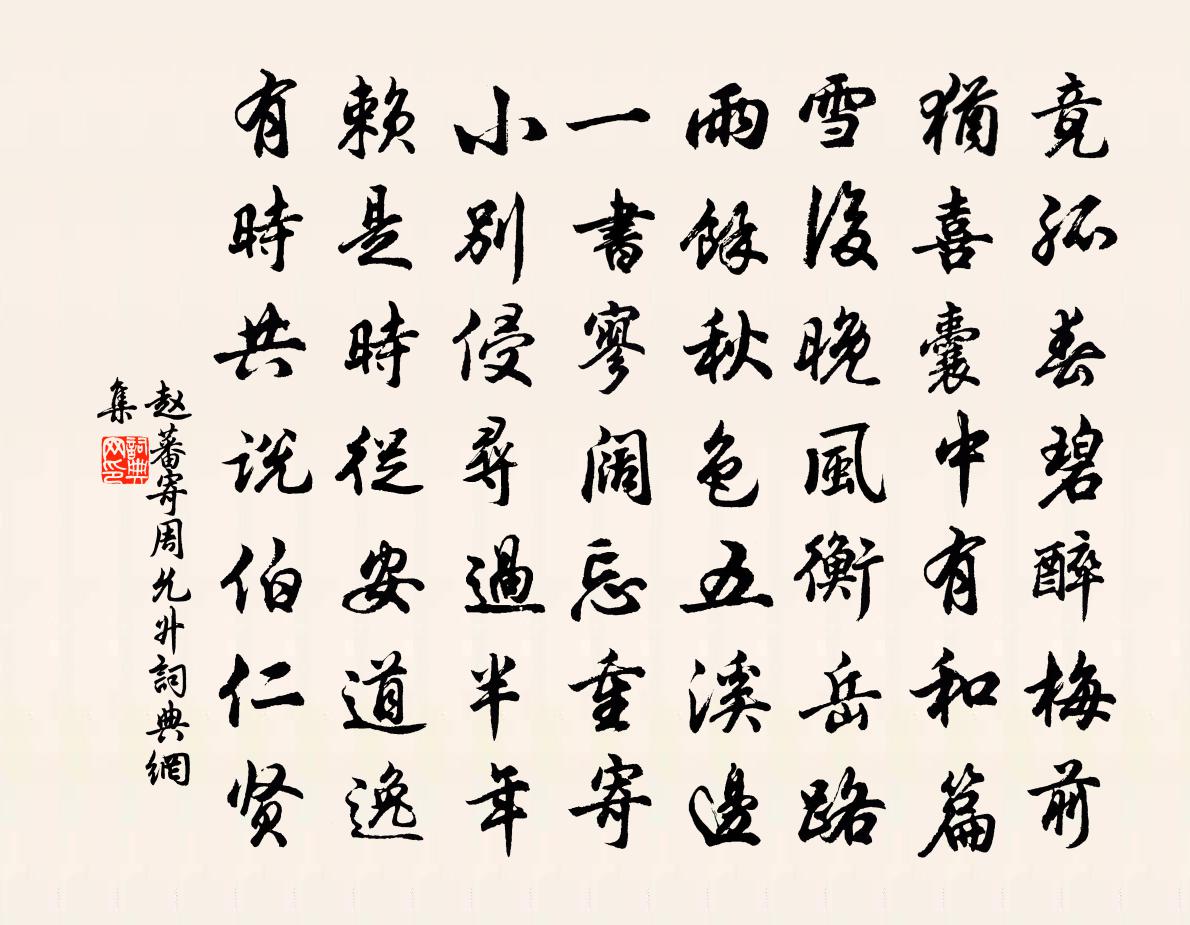 竟孤春碧醉梅前
猶喜囊中有和篇
雪後晚風衡岳路
雨餘秋色五溪邊
一書寥阔忘重寄
小别侵尋過半年
賴是時從安道逸
有時共説伯仁贤
赵蕃寄周允升詞典網
集
詞典
网印